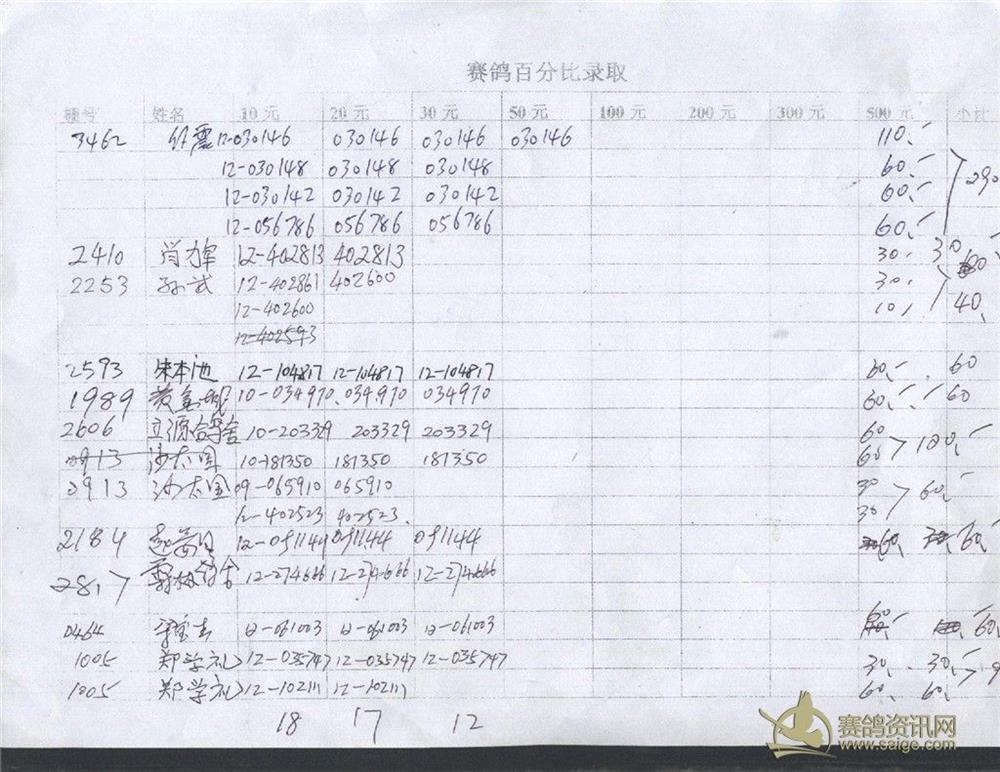 赛鸽百分比录取
棚号 姓名 10元 20元 30元 50元 100元 200元 300元 500元 小计
3462 震 12-030146 030146 030146 030146 110.-
12-030148 030148 030148 60.-
12-030142 030142 030142 60.- 290
12-056786 056786 056786 60.-
2410 肖力军 12-402813 402813 30. 30
2253 孙武 12-402861 402600 30.
12-402600 10. 40.
12-402593
2593 朱本池 12-104817 12-104817 12-104817 60.- 60
1989 黄 10-034970 034970 034970 60.- 60
2606 立源合鸽舍 10-203329 203329 203329 60
0913 沙太国 10-181350 181350 181350 60
0913 沙太国 09-065910 065910 30 60.-
12-402523 402523. 30
2184 12-091144 091144 091144 60. 60.
2817 鸽舍 12-274666 12-274666 12-274666
0464 12-061003 12-061003 12-061003 60.
1005 郑学礼 12-035747 12-035747 12-035747 30. 30.-
1005 郑学礼 12-102111 12-102111 60. 60.
18 17 12
赛鸽资讯网
www.saige.com